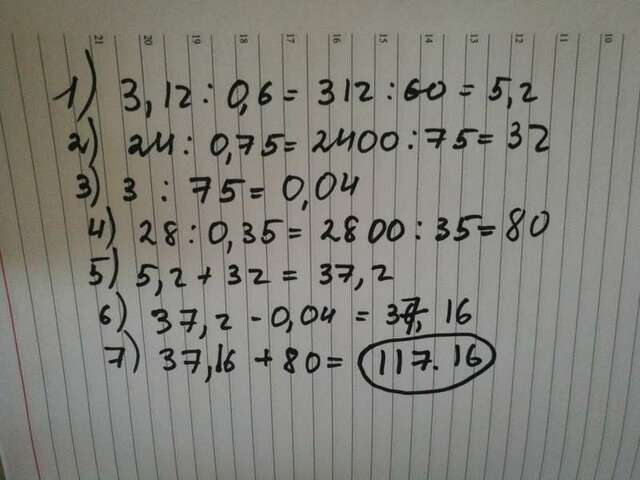 21 20 19 18 17 16 15 14 13 12 11 10
1) 3,12 : 0,6 = 312 : 60 = 5,2
2) 24 : 0,75 = 2400 : 75 = 32
3) 3 : 75 = 0,04
4) 28 : 0,35 = 2800 : 35 = 80
5) 5,2 + 32 = 37,2
6) 37,2 - 0,04 = 37, 16
7) 37,16 + 80 = 117. 16